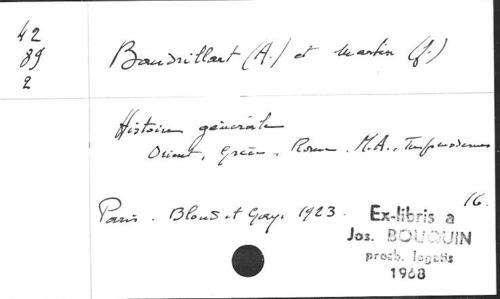 42
89
2
Baudrillart (A.) et Martin (J.)
Histoire générale
Orient, Grèce, Rome, M.A., Temps modernes
Paris. Bloud et Gay. 1923. 16.
Ex-libris a
Jos. BOUQUIN
presb. legatis
1968